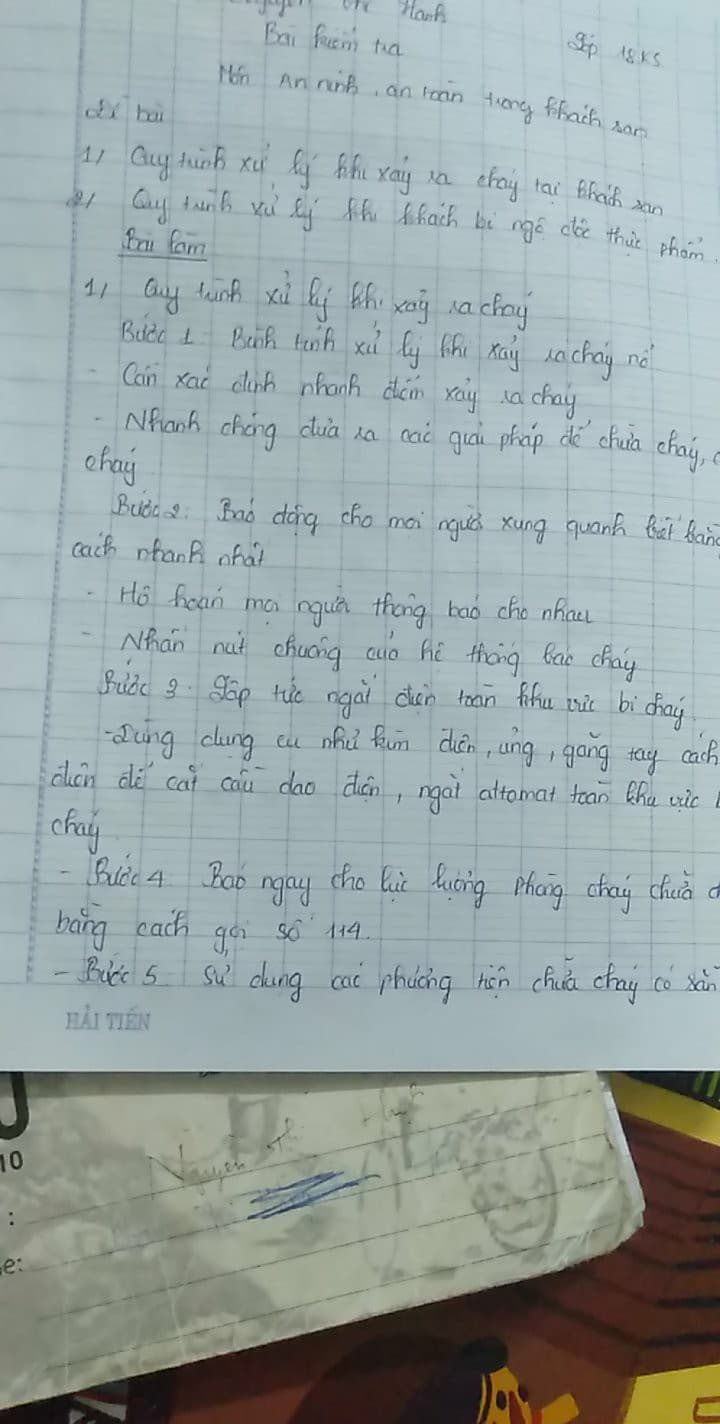 Hanh
Bài kiểm tra Lớp 18KS
Môn An ninh, an toàn trong khách sạn
Đề bài
1/ Quy trình xử lý khi xảy ra cháy tại khách sạn
2/ Quy trình xử lý khi khách bị ngộ độc thực phẩm.
Bài làm
1/ Quy trình xử lý khi xảy ra cháy
Bước 1 Bình tĩnh xử lý khi xảy ra cháy nổ
- Cần xác định nhanh điểm xảy ra cháy
- Nhanh chóng đưa ra các giải pháp để chữa cháy,
cháy
Bước 2: Báo động cho mọi người xung quanh biết bằng
cách nhanh nhất
- Hô hoán mọi người thông báo cho nhau
- Nhấn nút chuông của hệ thống báo cháy
Bước 3. Lập tức ngắt điện toàn khu vực bị cháy.
- Dùng dụng cụ như kìm điện, ủng, găng tay cách
điện để cắt cầu dao điện, ngắt attomat toàn khu vực
cháy
- Bước 4 Báo ngay cho lực lượng phòng cháy chữa
bằng cách gọi số 114.
- Bước 5 sử dụng các phương tiện chữa cháy có sẵn
HẢI TIẾN
10
:
e:
Nguyễn Thị